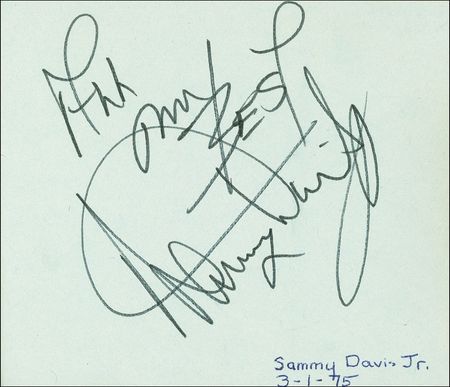 All my Best
Sammy Davis Jr
Sammy Davis Jr.
3-1-75